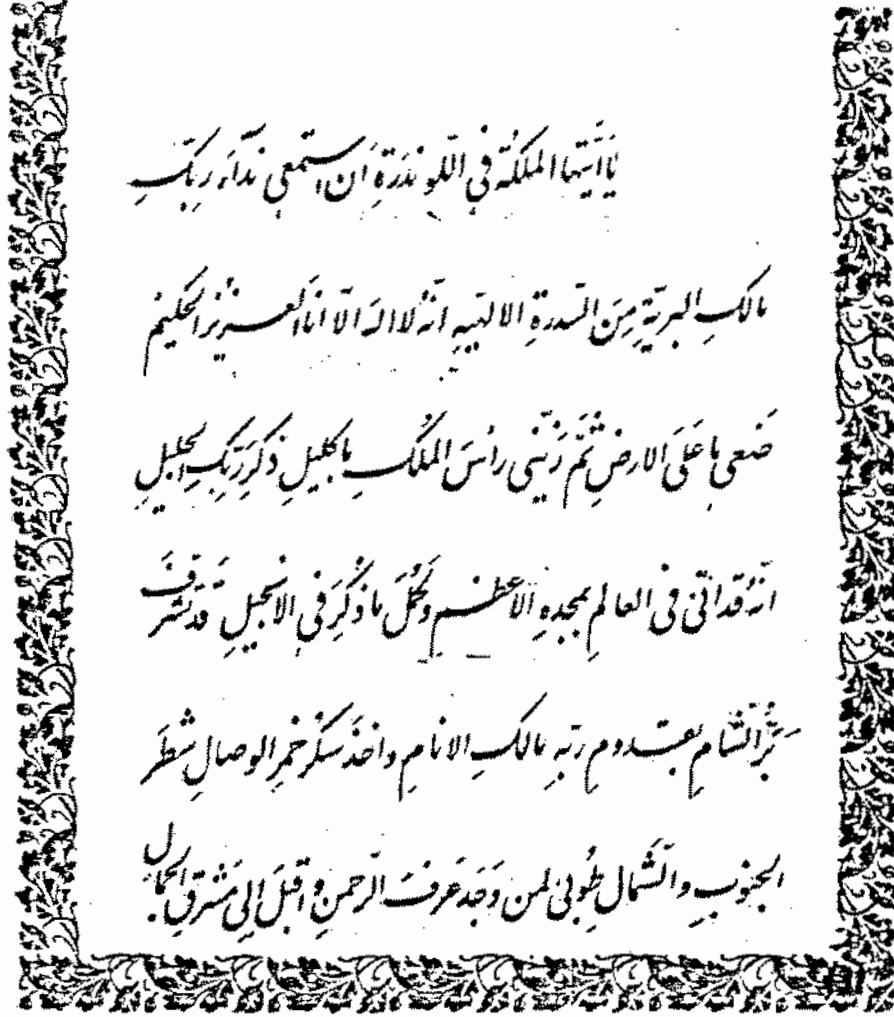 يَا اَيَّتُها المَلِكَةُ فِي اللّوندرَةِ اَنِ استَمِعِي نِدَآءَ رَبِّكِ
مالِكِ البَرِيَّةِ مِنَ السِّدرةِ الالهيّةِ انّهُ لا اله الّا اناَ العزيزُ الحكيم
ضَعِي ما عَلَى الارضِ ثُمَّ زَيِّنِي راسَ المُلكِ باِكليلِ ذِكرِ رَبِّكِ الجليلِ
انّهُ قد اتٰى فى العالمِ بمجدهِ الاعظمِ و كَمُلَ ما ذُكِرَ في الانجيلِ قَد تَشَرَّفَ
بَرُّ الشّامِ بقدومِ ربّهِ مالكِ الانامِ و اخذ سُكرُ خمرِ الوصالِ شطرَ
الجنوبِ و الشَّمال طُوبىٰ لمن وَجَدَ عَرفَ الرّحمنِ و اقبَلَ اِلىٰ مَشرقِ الجمال